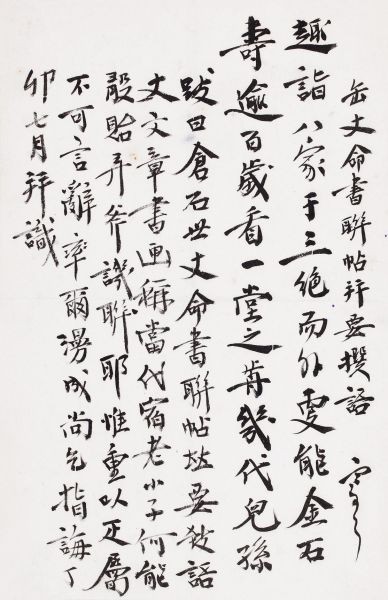 缶丈命書聯帖并要撰語
趣詣八家于三絶而外更能金石
壽逾百歲看一堂之幾代兒孫
跋曰倉石世丈命書聯帖竝要語
丈文章書画稱當代宿老小子何能
貽弄斧譏聯耶惟重以疋屬
不可言辭率爾漫成尚乞指誨丁
卯七月拜識